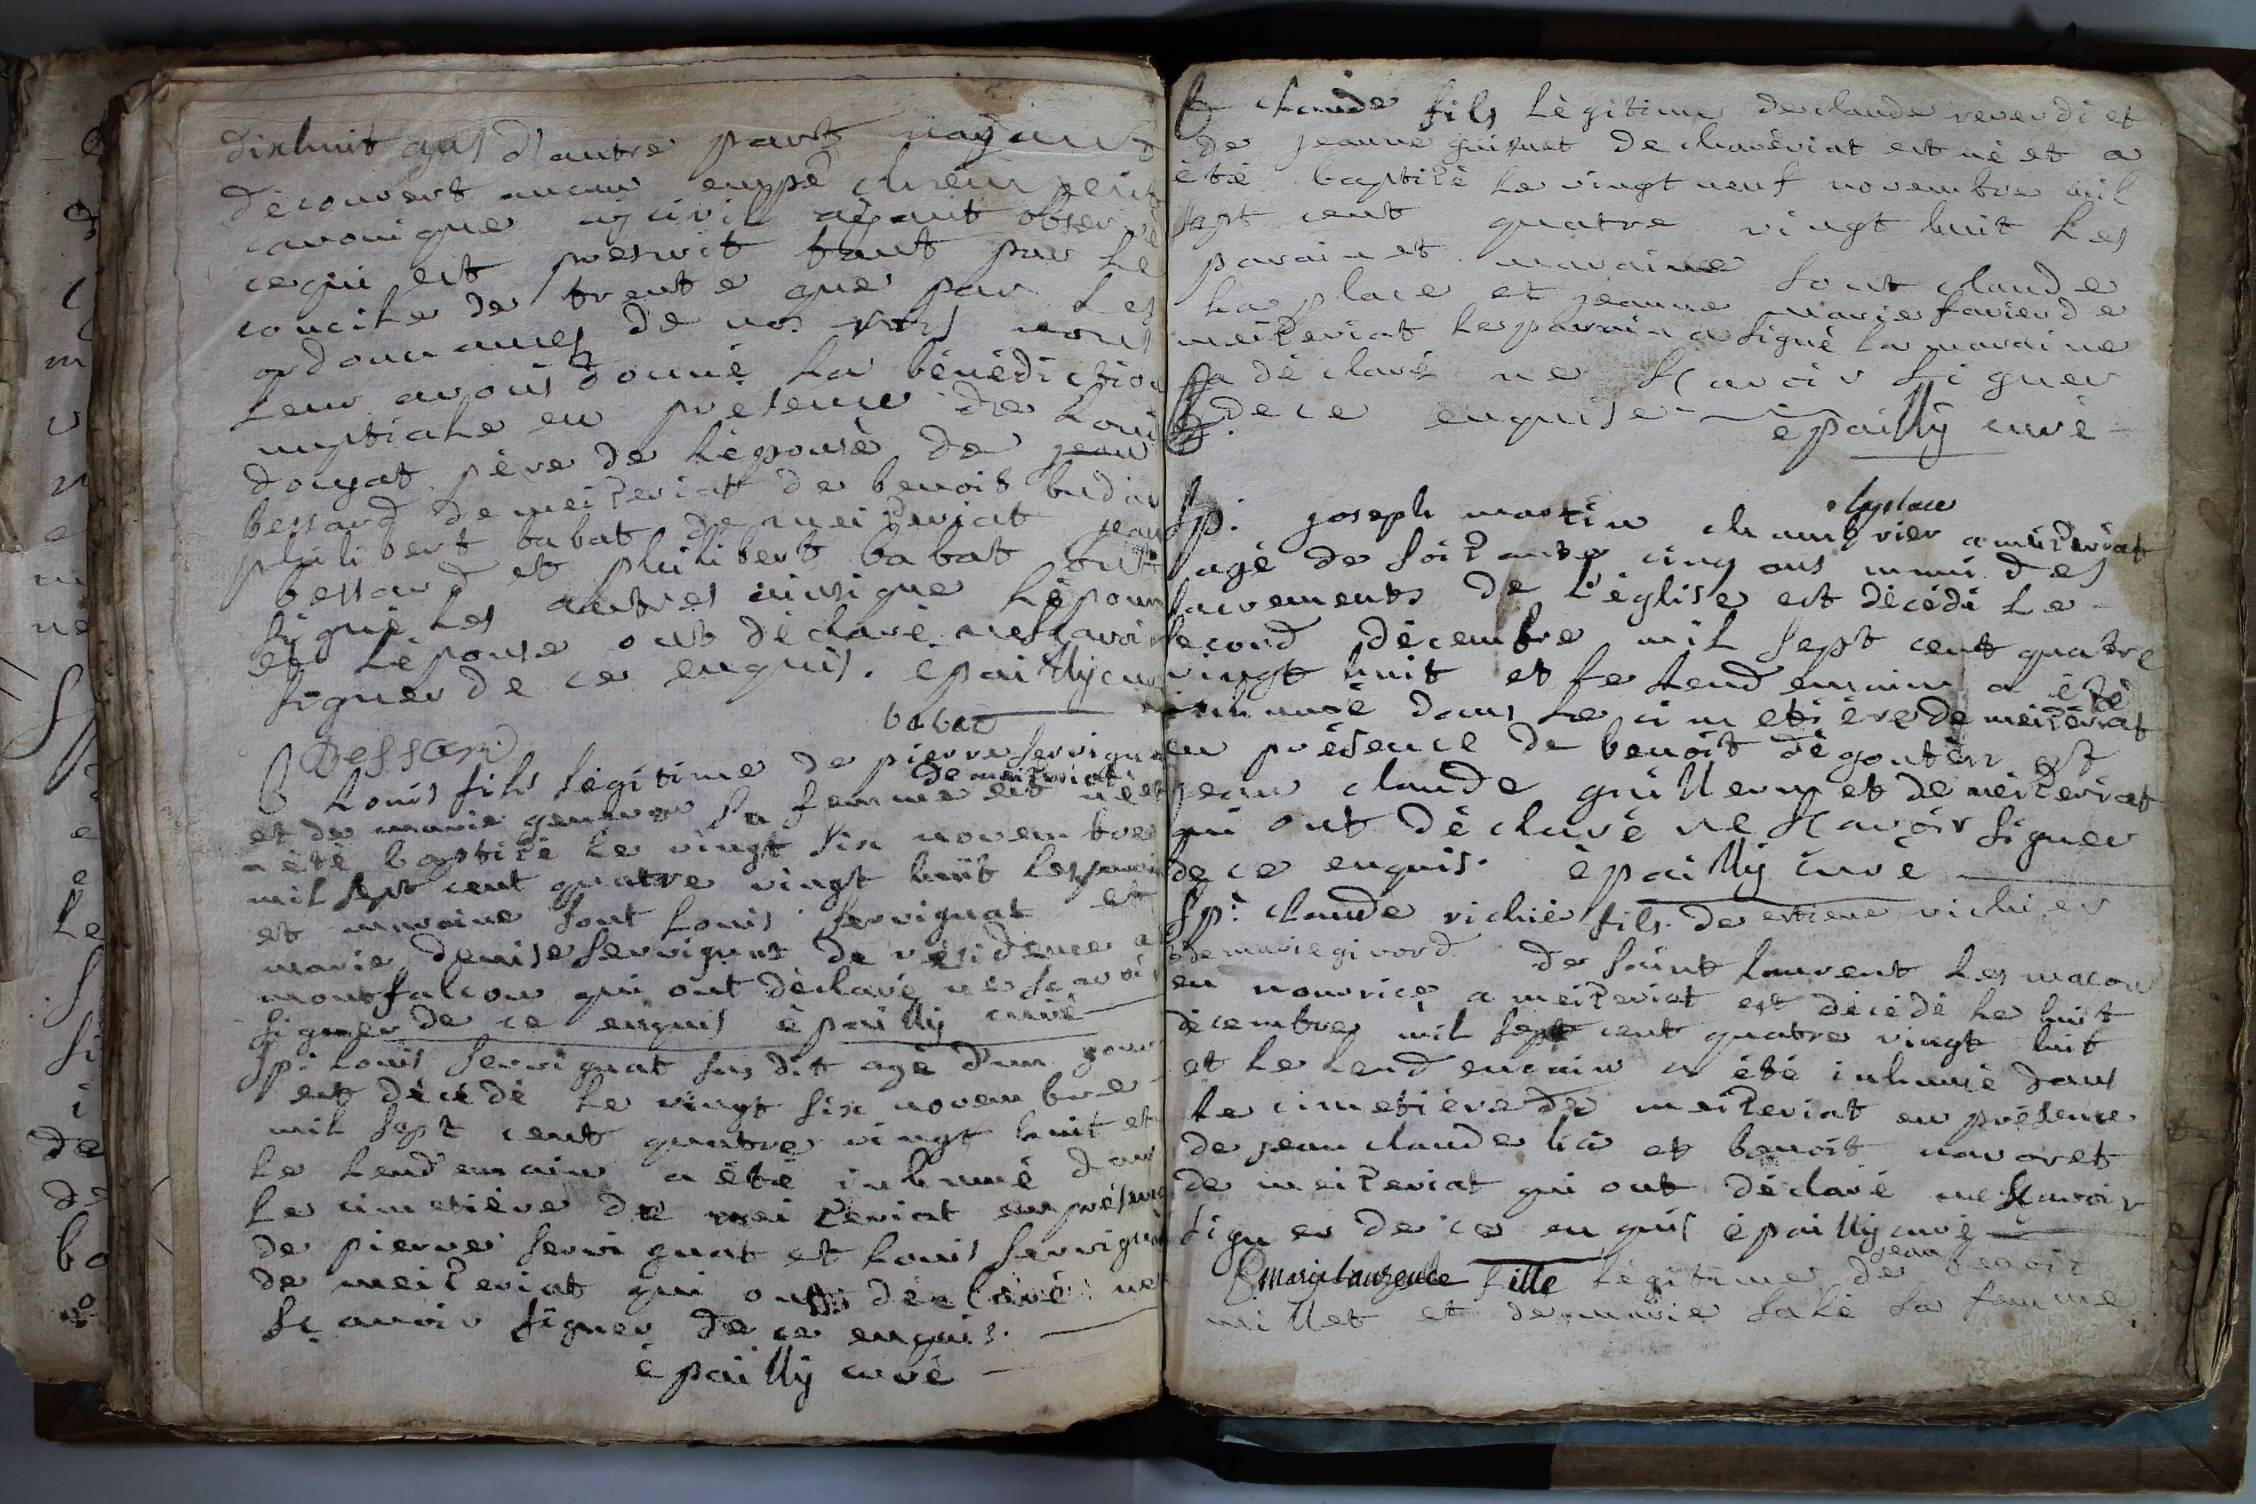 dixhuit ans d'autre part nayant
découvert aucun empê
canonique ny civil ayant observé
cequi est prescrit tant par le
concile de trente que par les
ordonnances de nos rois nous
leur avons donné la bénédiction
nuptiale en présence de loui
douyat père de lépousé de jean
bessard de meizeriat de benoit
philibert babat de meizeriat jean
bessard et philibert babat ont
signé les autres
et lépouse ont déclaré nescavoi
signer de ce enquis. épailly cur
babat
Bessard
B louis fils légitime de pierre servigna
de meizeriat
et de marie sa femme est né et
a été baptizé le vingt six novembre
mil sept cent quatre vingt huit les parain
et maraine sont louis servignat et
marie denise servignat de résidence a
montfalcon qui ont déclaré ne scavoir
signer de ce enquis épailly curé
Sp: louis servignat susdit agé d'un jour
est décédé le vingt six novembre
mil sept cent quatre vingt huit et
le lendemain a été inhumé dans
le cimetière de meizeriat en présence
de pierre servignat et louis servignat
de meizeriat qui ont déclaré ne
scavoir signer de ce enquis.
épailly curé
B claude fils légitime de claude reverdi et
de jeanne de chavériat est né et a
été baptizé le vingt neuf novembre mil
sept cent quatre vingt huit les
parain et maraine sont claude
la place et jeanne marie favier de
meizeriat le parain a signé la maraine
a déclaré ne scavoir signer
de ce enquise épailly curé
laplace
Sp. joseph martin chambrier a meizeriat
agé de soizante cinq ans muni des
sacrements de l'église est décédé le
second décembre mil sept cent quatre
vingt huit et le lendemain a été
inhumé dans le cimetière de meizériat
en présence de benoît dégoutte et
jean claude guillermet de meizeriat
qui ont déclaré ne scavoir signer
de ce enquis. épailly curé
Sp: claude richié fils de estiene richier
et de marie givord de saint laurent les macon
en nourrice a meizeriat est décédé le huit
décembre mil sept cent quatre vingt huit
et le lendemain a été inhumé dans
le cimetière de meizeriat en présence
de jean claude et benoit navoret
de meizeriat qui ont déclaré ne scavoir
signer de ce enquis épailly curé
jean
B marie laurence fille légitime de benoit
millet et de marie salé sa femme